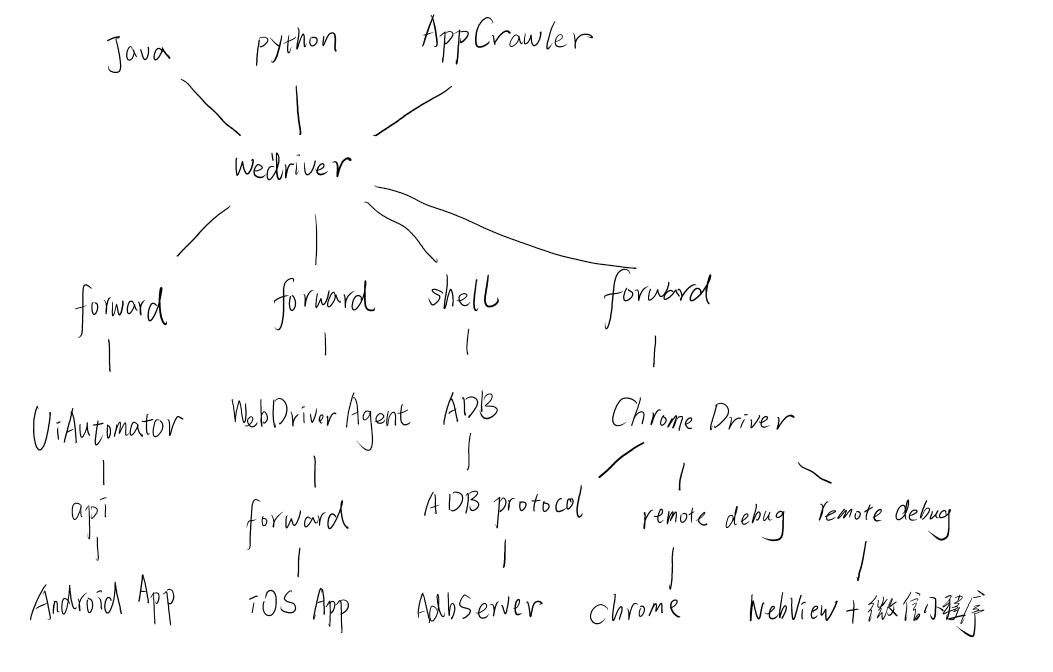 Java
python
AppCrawler
wedriver
forward
forward
shell
forward
UiAutomator
WebDriverAgent
ADB
Chrome Driver
api
forward
ADB protocol
remote debug
remote debug
Android App
iOS App
AdbServer
chrome
WebView + 微信小程序